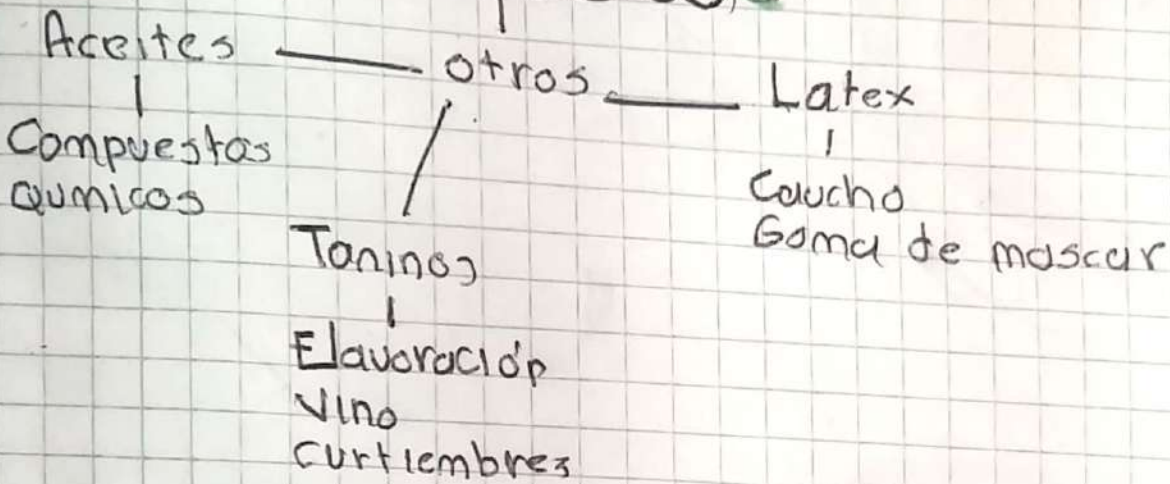 Aceites
otros
Latex
Compuestas
Qumicos
Caucho
Goma de mascar
Taninos
Elavoración
Vino
Curtiembres